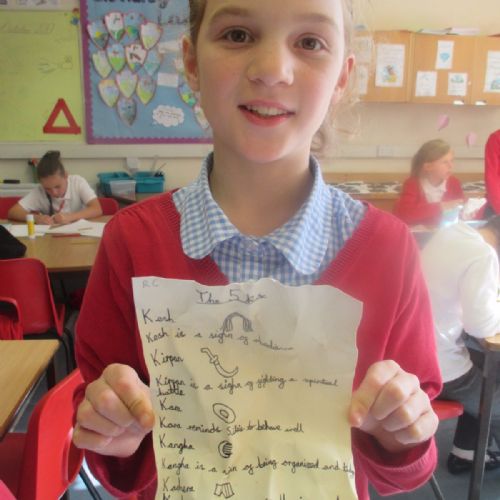 R.E.
The 5 ks
Kesh
Kesh is a sighn of
Kirpan
Kirpan is a sighn of fighting a spiritual
battle
Kara
Kara reminds Sihs to behave well
Kangha
Kangha is a sign of being organised and tidy
Kachera